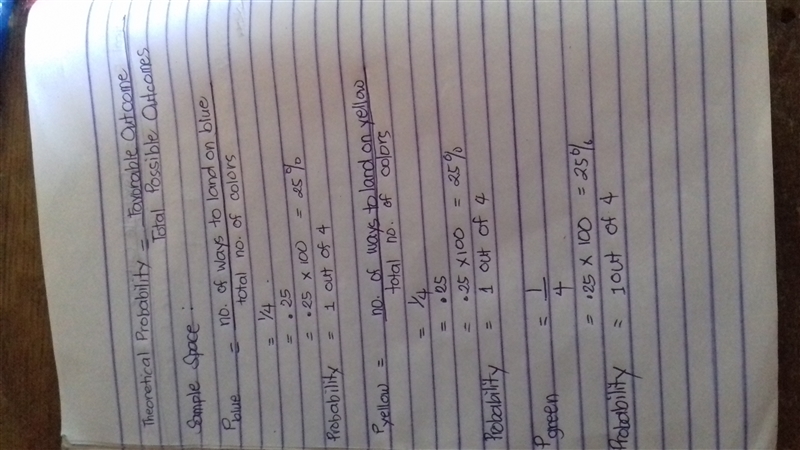 Theoretical Probability = Favorable Outcome
Total Possible Outcomes
Sample Space :
Pblue = no. of ways to land on blue
total no. of colors
= 1/4
= .25
= .25 x 100 = 25%
Probability = 1 out of 4
Pyellow = no. of ways to land on yellow
total no. of colors
= 1/4
= .25
= .25 x 100 = 25%
Probability = 1 out of 4
Pgreen = 1
4
= .25 x 100 = 25%
Probability = 1 out of 4